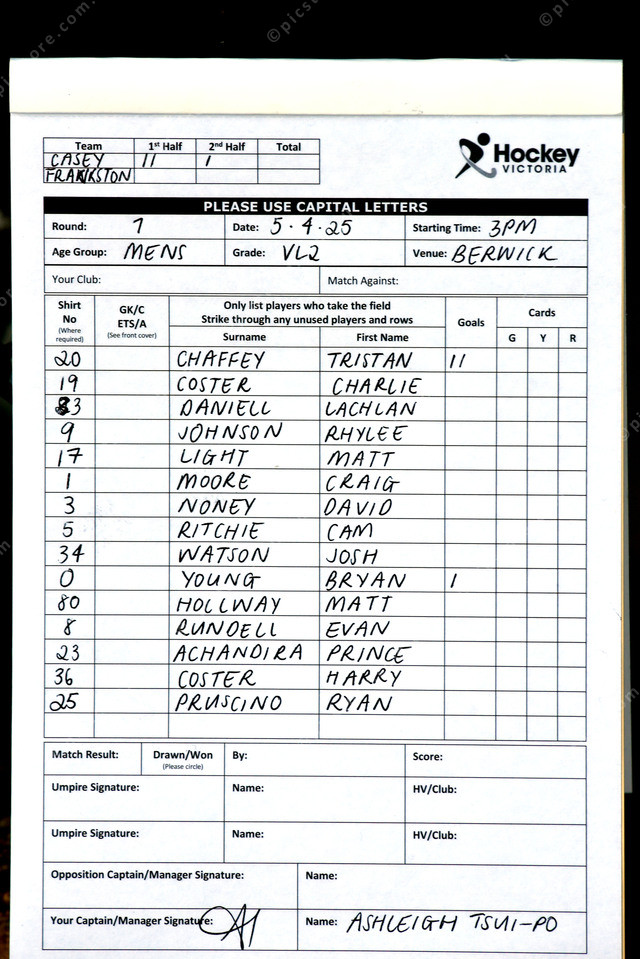 Team 1st Half 2nd Half Total
CASEY 11 1
FRANKSTON
Hockey
VICTORIA
PLEASE USE CAPITAL LETTERS
Round: 7 Date: 5.4.25 Starting Time: 3PM
Age Group: MENS Grade: VL2 Venue: BERWICK
Your Club: Match Against:
Shirt No (Where required) GK/C ETS/A (See front cover) Only list players who take the field Strike through any unused players and rows Goals Cards
Surname First Name G Y R
20 CHAFFEY TRISTAN 11
19 COSTER CHARLIE
DANIELL LACHLAN
9 JOHNSON RHYLEE
17 LIGHT MATT
1 MOORE CRAIG
3 NONEY DAVID
5 RITCHIE CAM
34 WATSON JOSH
0 YOUNG BRYAN 1
80 HOLLWAY MATT
8 RUNDELL EVAN
23 ACHANDIRA PRINCE
36 COSTER HARRY
25 PRUSCINO RYAN
Match Result: Drawn/Won (Please circle) By: Score:
Umpire Signature: Name: HV/Club:
Umpire Signature: Name: HV/Club:
Opposition Captain/Manager Signature: Name:
Your Captain/Manager Signature: Name: ASHLEIGH TSUI-PO